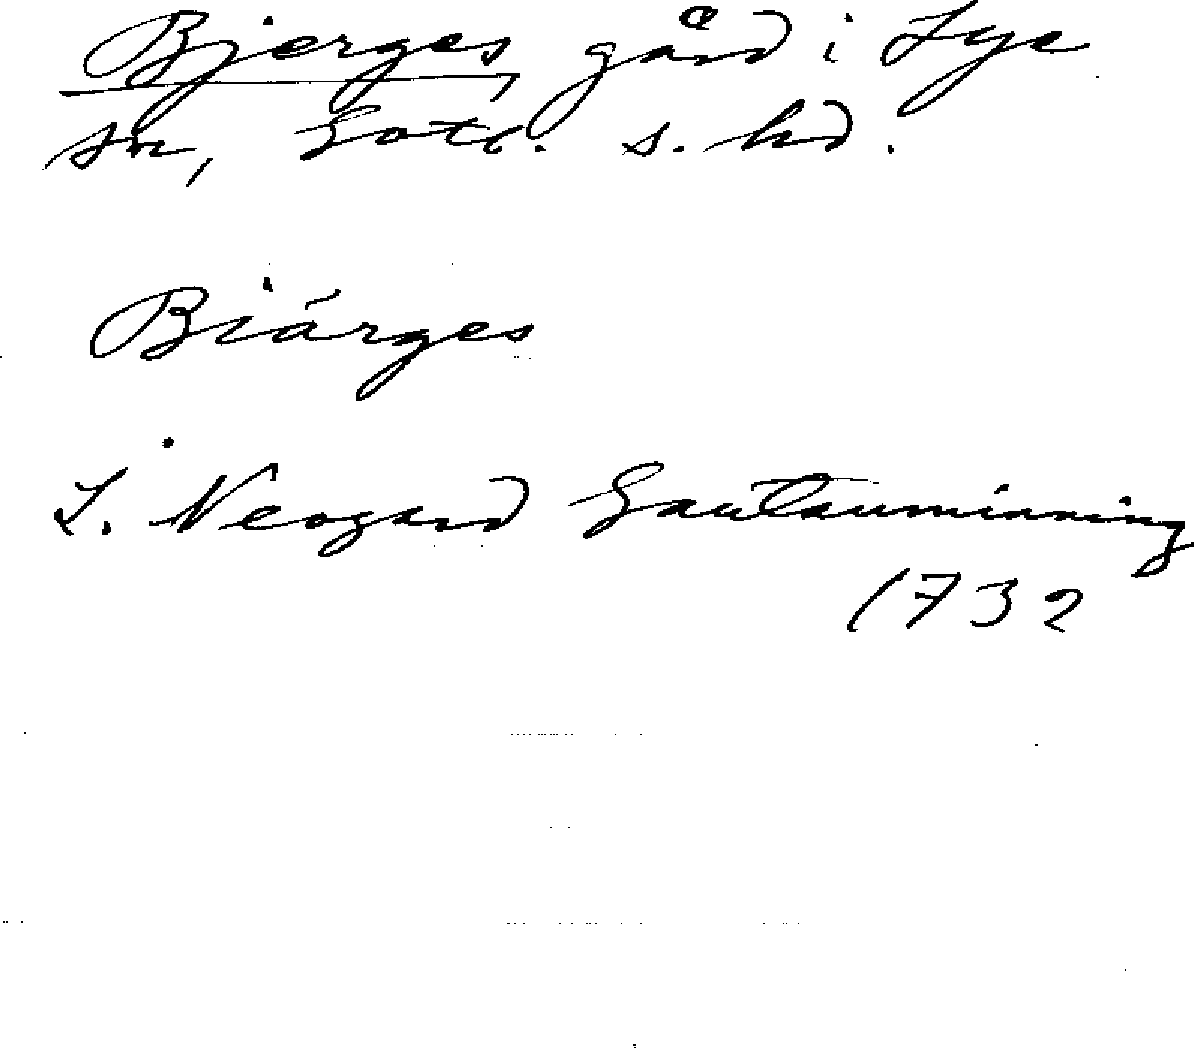 Bjerges, gård i Lye
sn, Gotl. s. hd.
Biärges
L. Neogard Gautauminning
1732